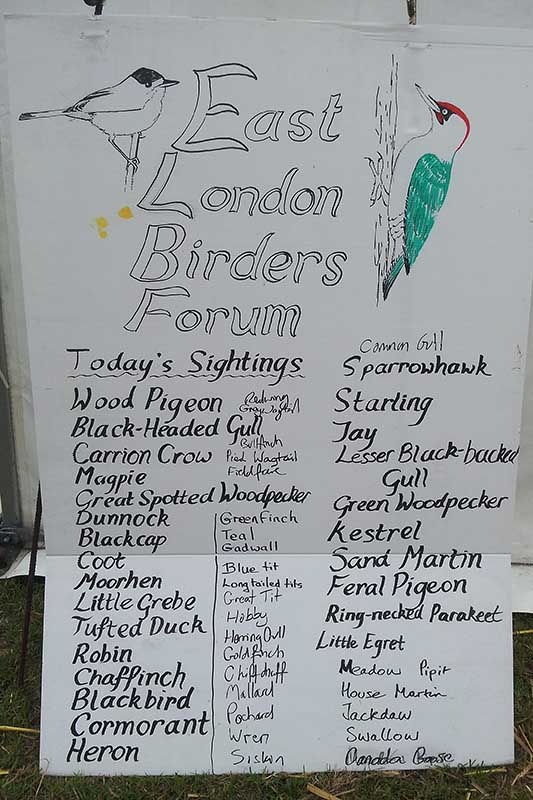 East
London
Birders
Forum
Today's Sightings
Wood Pigeon
Redwing
Grey Wagtail
Black-Headed Gull
Bullfinch
Carrion Crow
Pied Wagtail
Magpie
Fieldfare
Great Spotted Woodpecker
Dunnock
Blackcap
Coot
Moorhen
Little Grebe
Tufted Duck
Robin
Chaffinch
Blackbird
Cormorant
Heron
Greenfinch
Teal
Gadwall
Blue tit
Longtailed tits
Great Tit
Hobby
Herring Gull
Goldfinch
Chiffchaff
Mallard
Pochard
Wren
Siskin
Common Gull
Sparrowhawk
Starling
Jay
Lesser Black-backed
Gull
Green Woodpecker
Kestrel
Sand Martin
Feral Pigeon
Ring-necked Parakeet
Little Egret
Meadow Pipit
House Martin
Jackdaw
Swallow